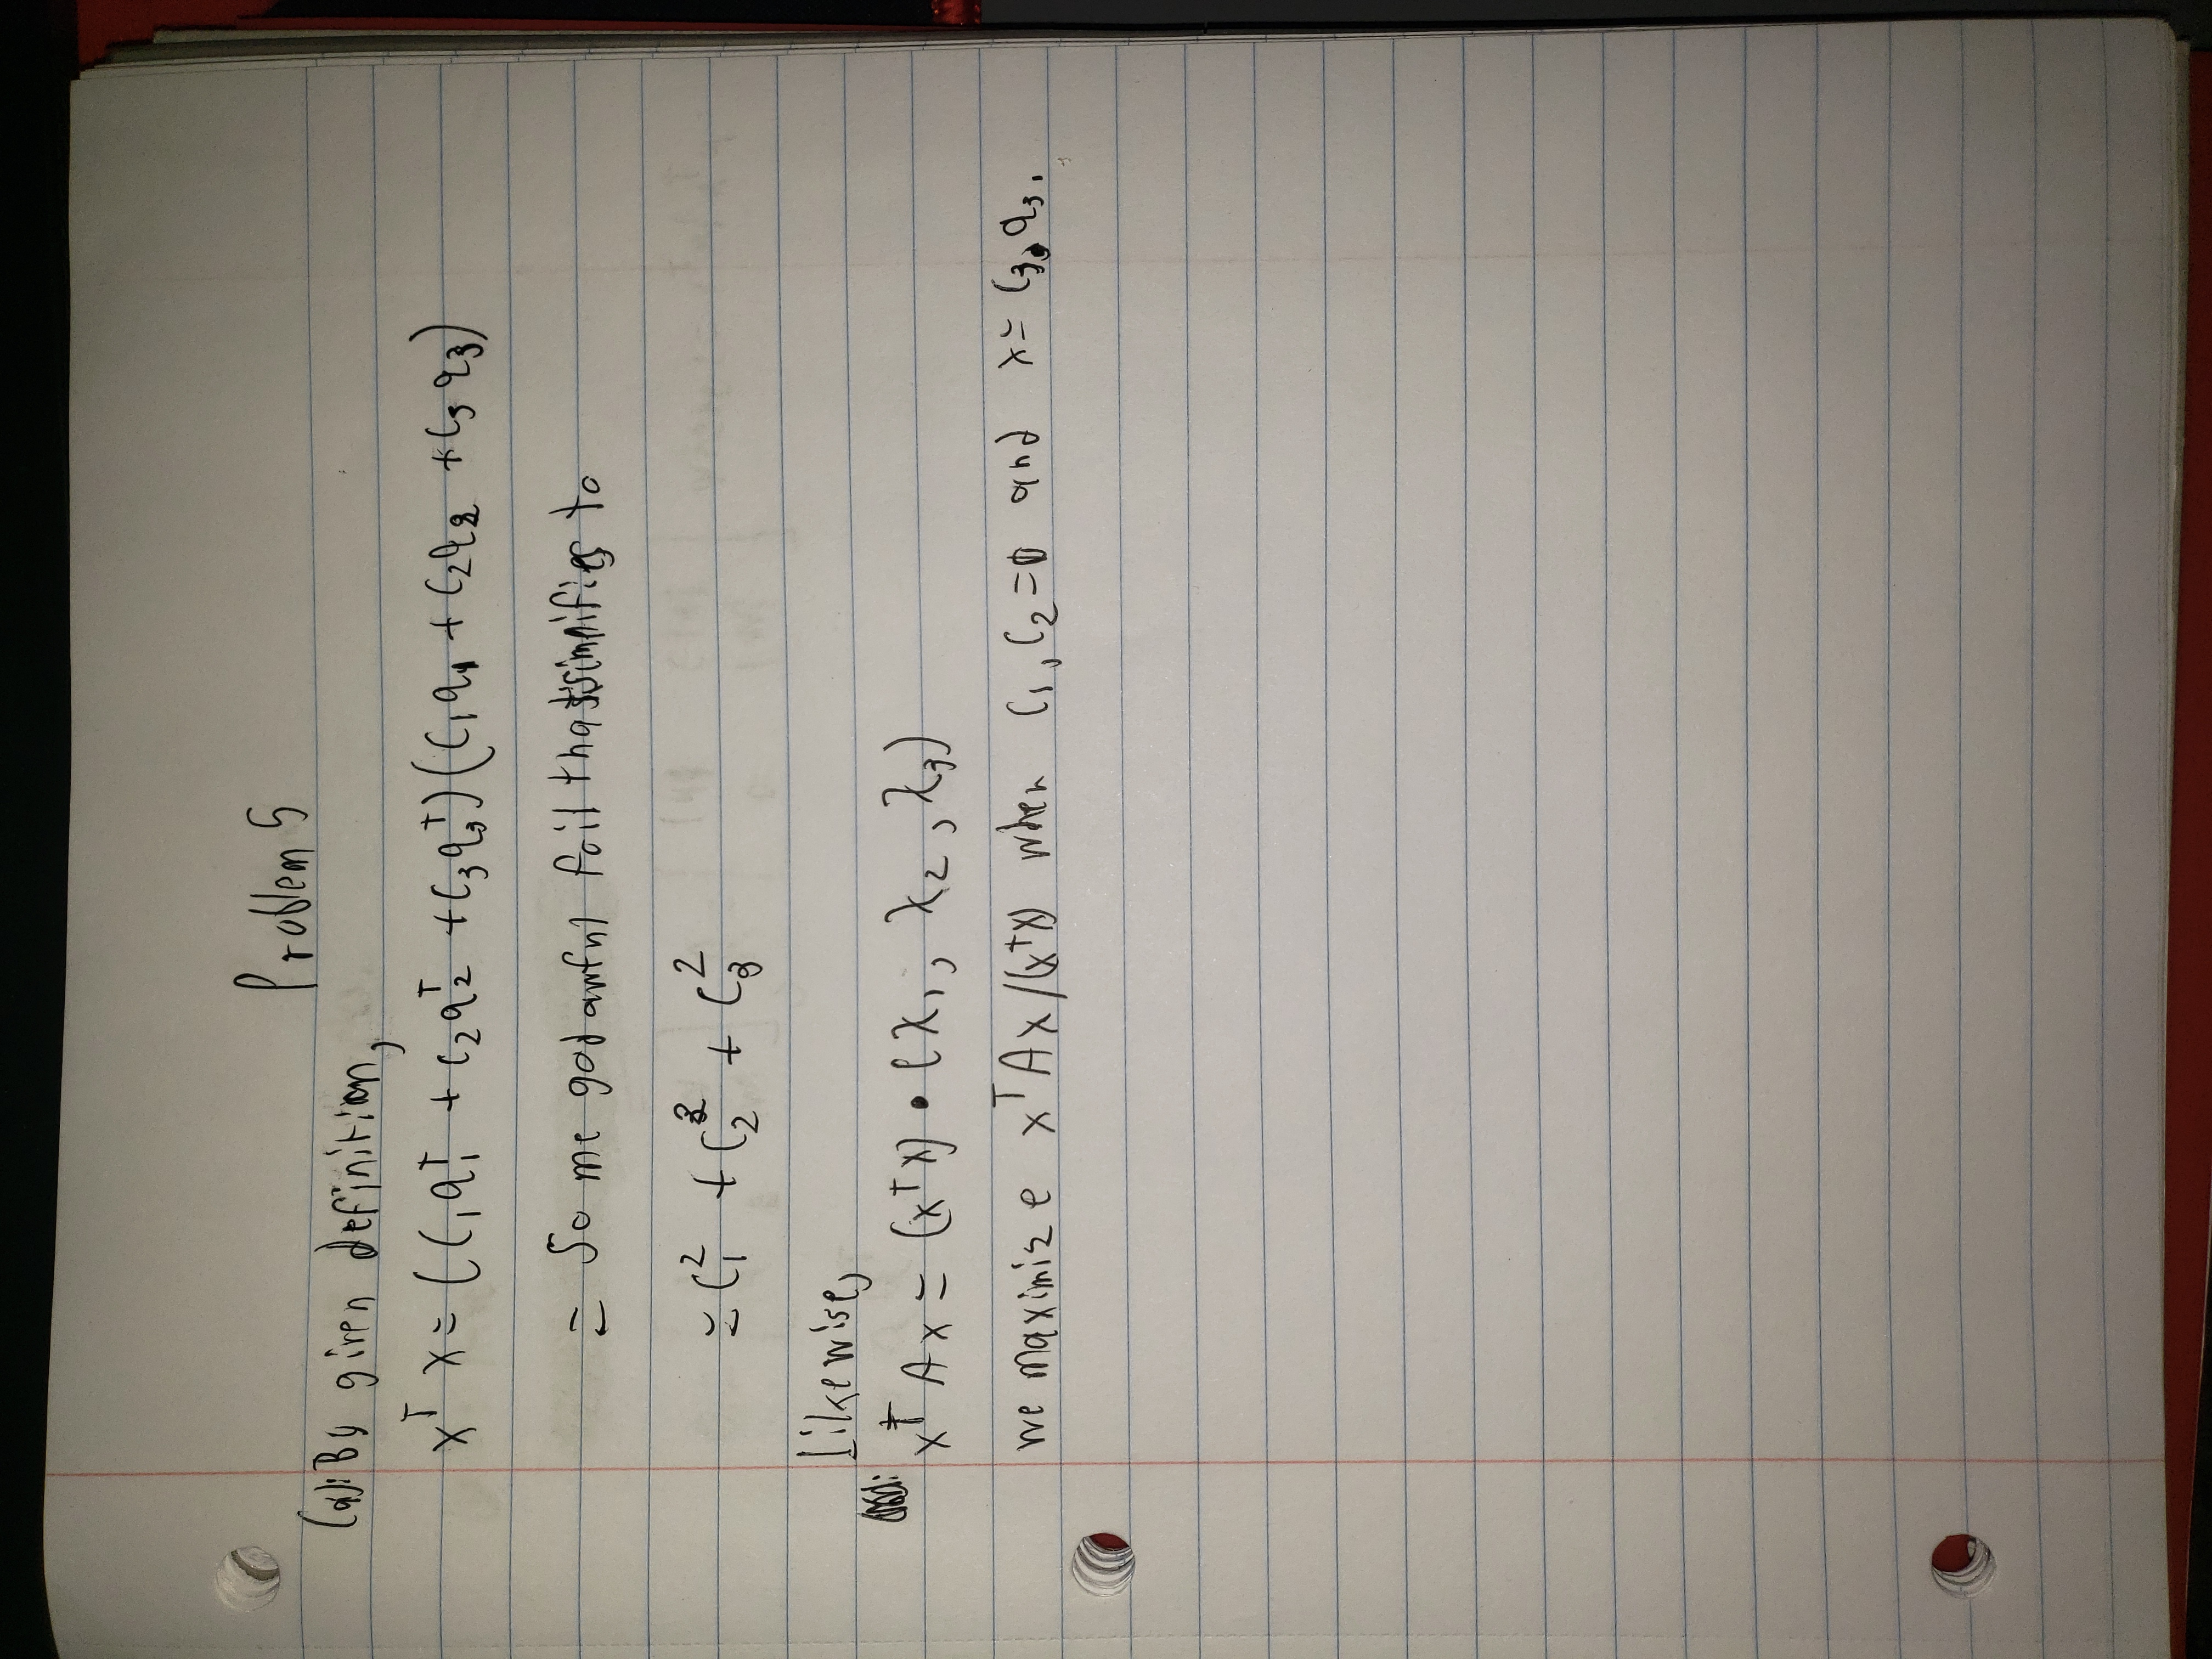 Problem 5
(a): By given definition,
x^T x = (c₁q₁^T + c₂q₂^T + c₃q₃^T)(c₁q₁ + c₂q₂ + c₃q₃)
= Some god awful foil that simplifies to
= c₁² + c₂² + c₃²
Likewise,
x^T A x = (x^T x) • (λ₁, λ₂, λ₃)
we maximize x^T A x / (x^T x) when c₁, c₂ = 0 and x = c₃ q₃.